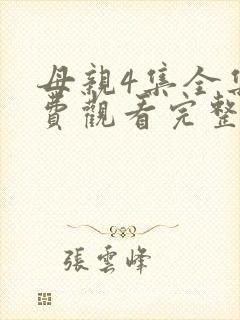 母親4集全集
費觀看完整
張雲峰